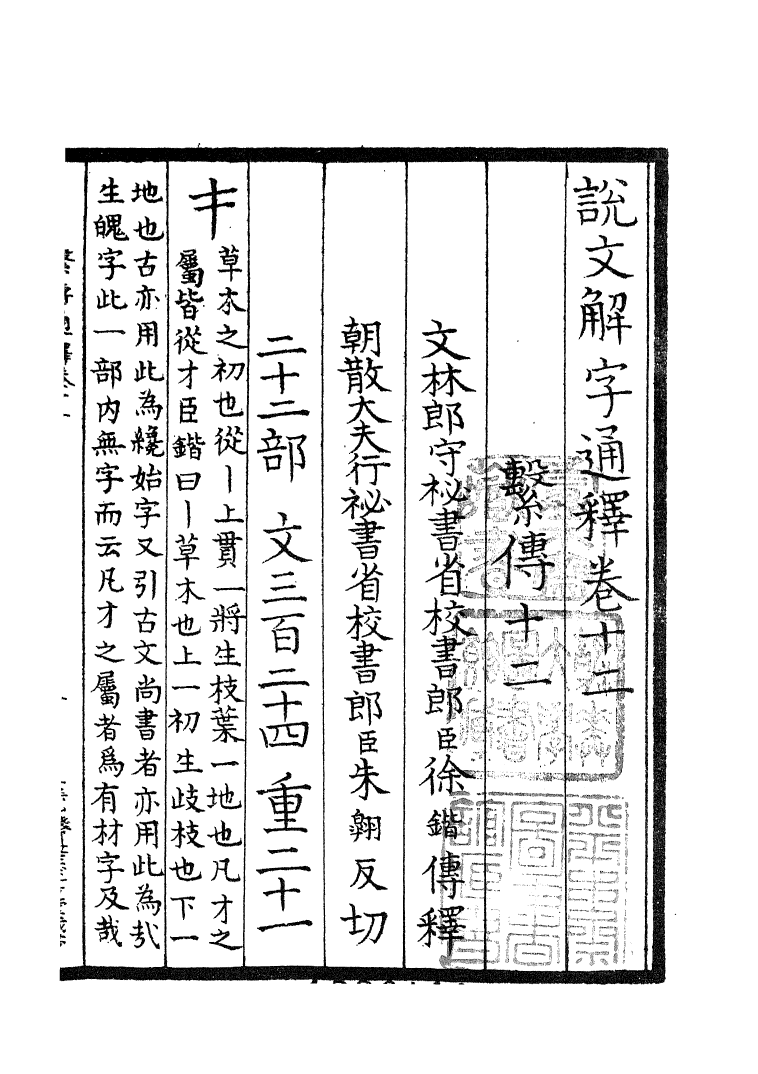 說文解字通釋卷十二
繫傳十二
文林郎守祕書省校書郎臣徐鍇傳釋
朝散大夫行祕書省校書郎臣朱翶反切
二十二部 文三百二十四 重二十一
才
草木之初也從丨上貫一將生枝葉一地也凡才之
屬皆從才臣鍇曰丨草木也上一初生歧枝也下一
地也古亦用此為纔始字又引古文尚書者亦用此為𢦏
生魄字此一部内無字而云凡才之屬者爲有材字及哉